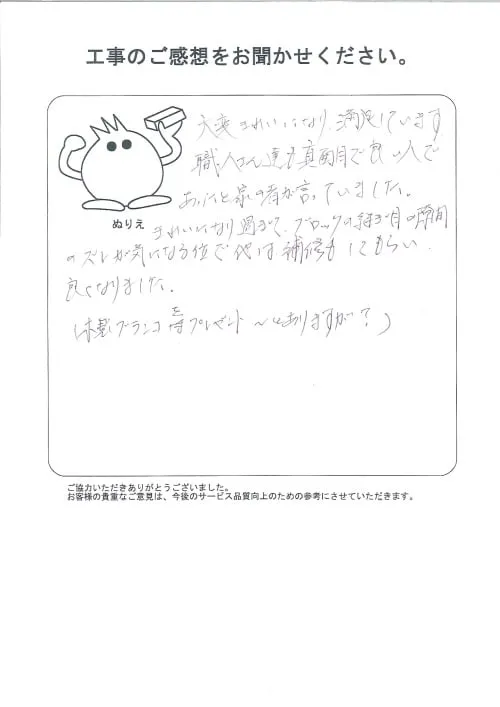 工事のご感想をお聞かせください。
大変きれいになり、満足しています
職人さん達も真面目で良い人で
あったと家の者が言っていました。
ぬりえ
きれいになり過ぎて、ブロックの継ぎ目の隙間
のズレが気になる位で他は補修もしてもらい、
良くなりました。
(木製ブランコをプレゼント〜とありますが?)
ご協力いただきありがとうございました。
お客様の貴重なご意見は、今後のサービス品質向上のための参考にさせていただきます。